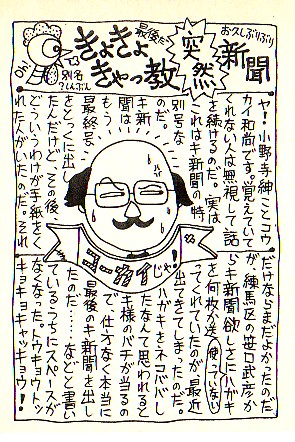 お久しぶりぶり
新聞
突然
最後だ
きょきょきゃっ教
別名
？しんぶん
Oh!
ヤ！小野寺紳ことコウ
カイ和尚です。覚えていて
くれない人は無視して話
を続けるのだ。実は
これはキ新聞の時
別号な
のだ。
キ新
聞は
もう
最終号
をとっくに出し
たんだけど、その後、
どういうわけか手紙をく
れた人がいたのだ。それ
だけならまだよかったのだ
が練馬区の笹口武彦か
らキ新聞欲しさにハガキ
を何枚か送
(使っていない)
ってくれていたのが最近
出てきてしまったのだ。
ハガキをネコババし
たなんて思われると
キ様のバチが当るの
で、仕方なく本当に
最後のキ新聞を出し
たのだ……などと書い
ているうちにスペースが
なくなった。トウキョウトッ
キョキョキャッキョウ！
コーカイじゃ！